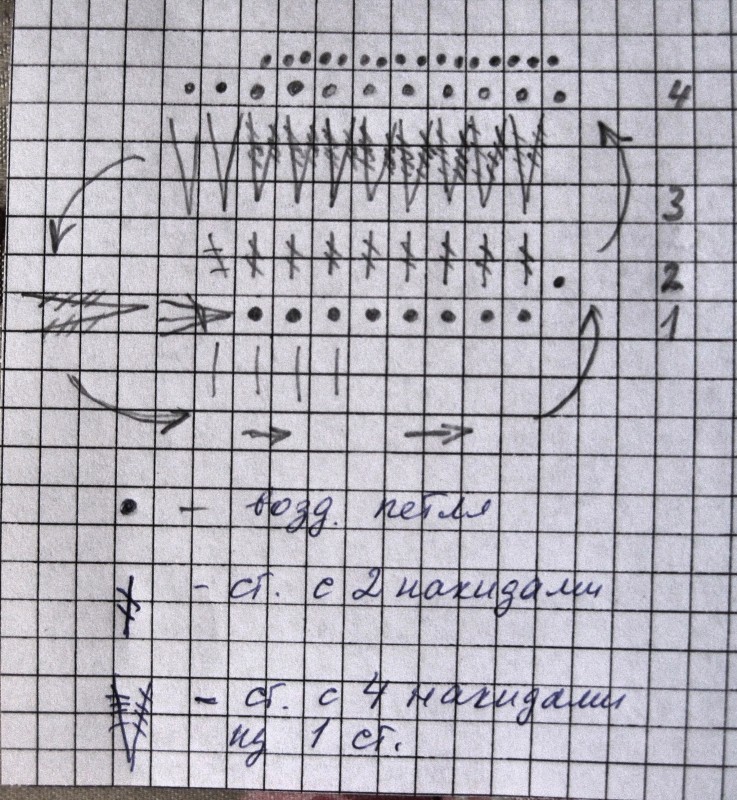 4
3
2
1
• - возд. петля
- ст. с 2 накидами
- ст. с 4 накидами
из 1 ст.